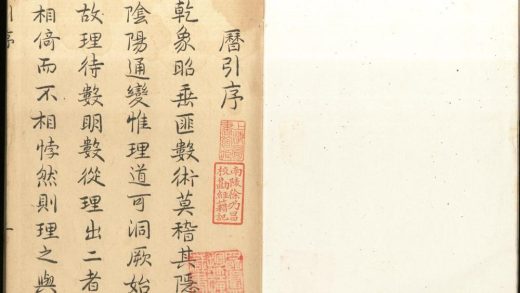 曆引序
乾象昭垂匪數術莫稽其隱
陰陽通變惟理道可洞厥始
故理待數明數從理出二者
相倚而不相悖然則理之與
南陵徐乃昌
校勘經籍記